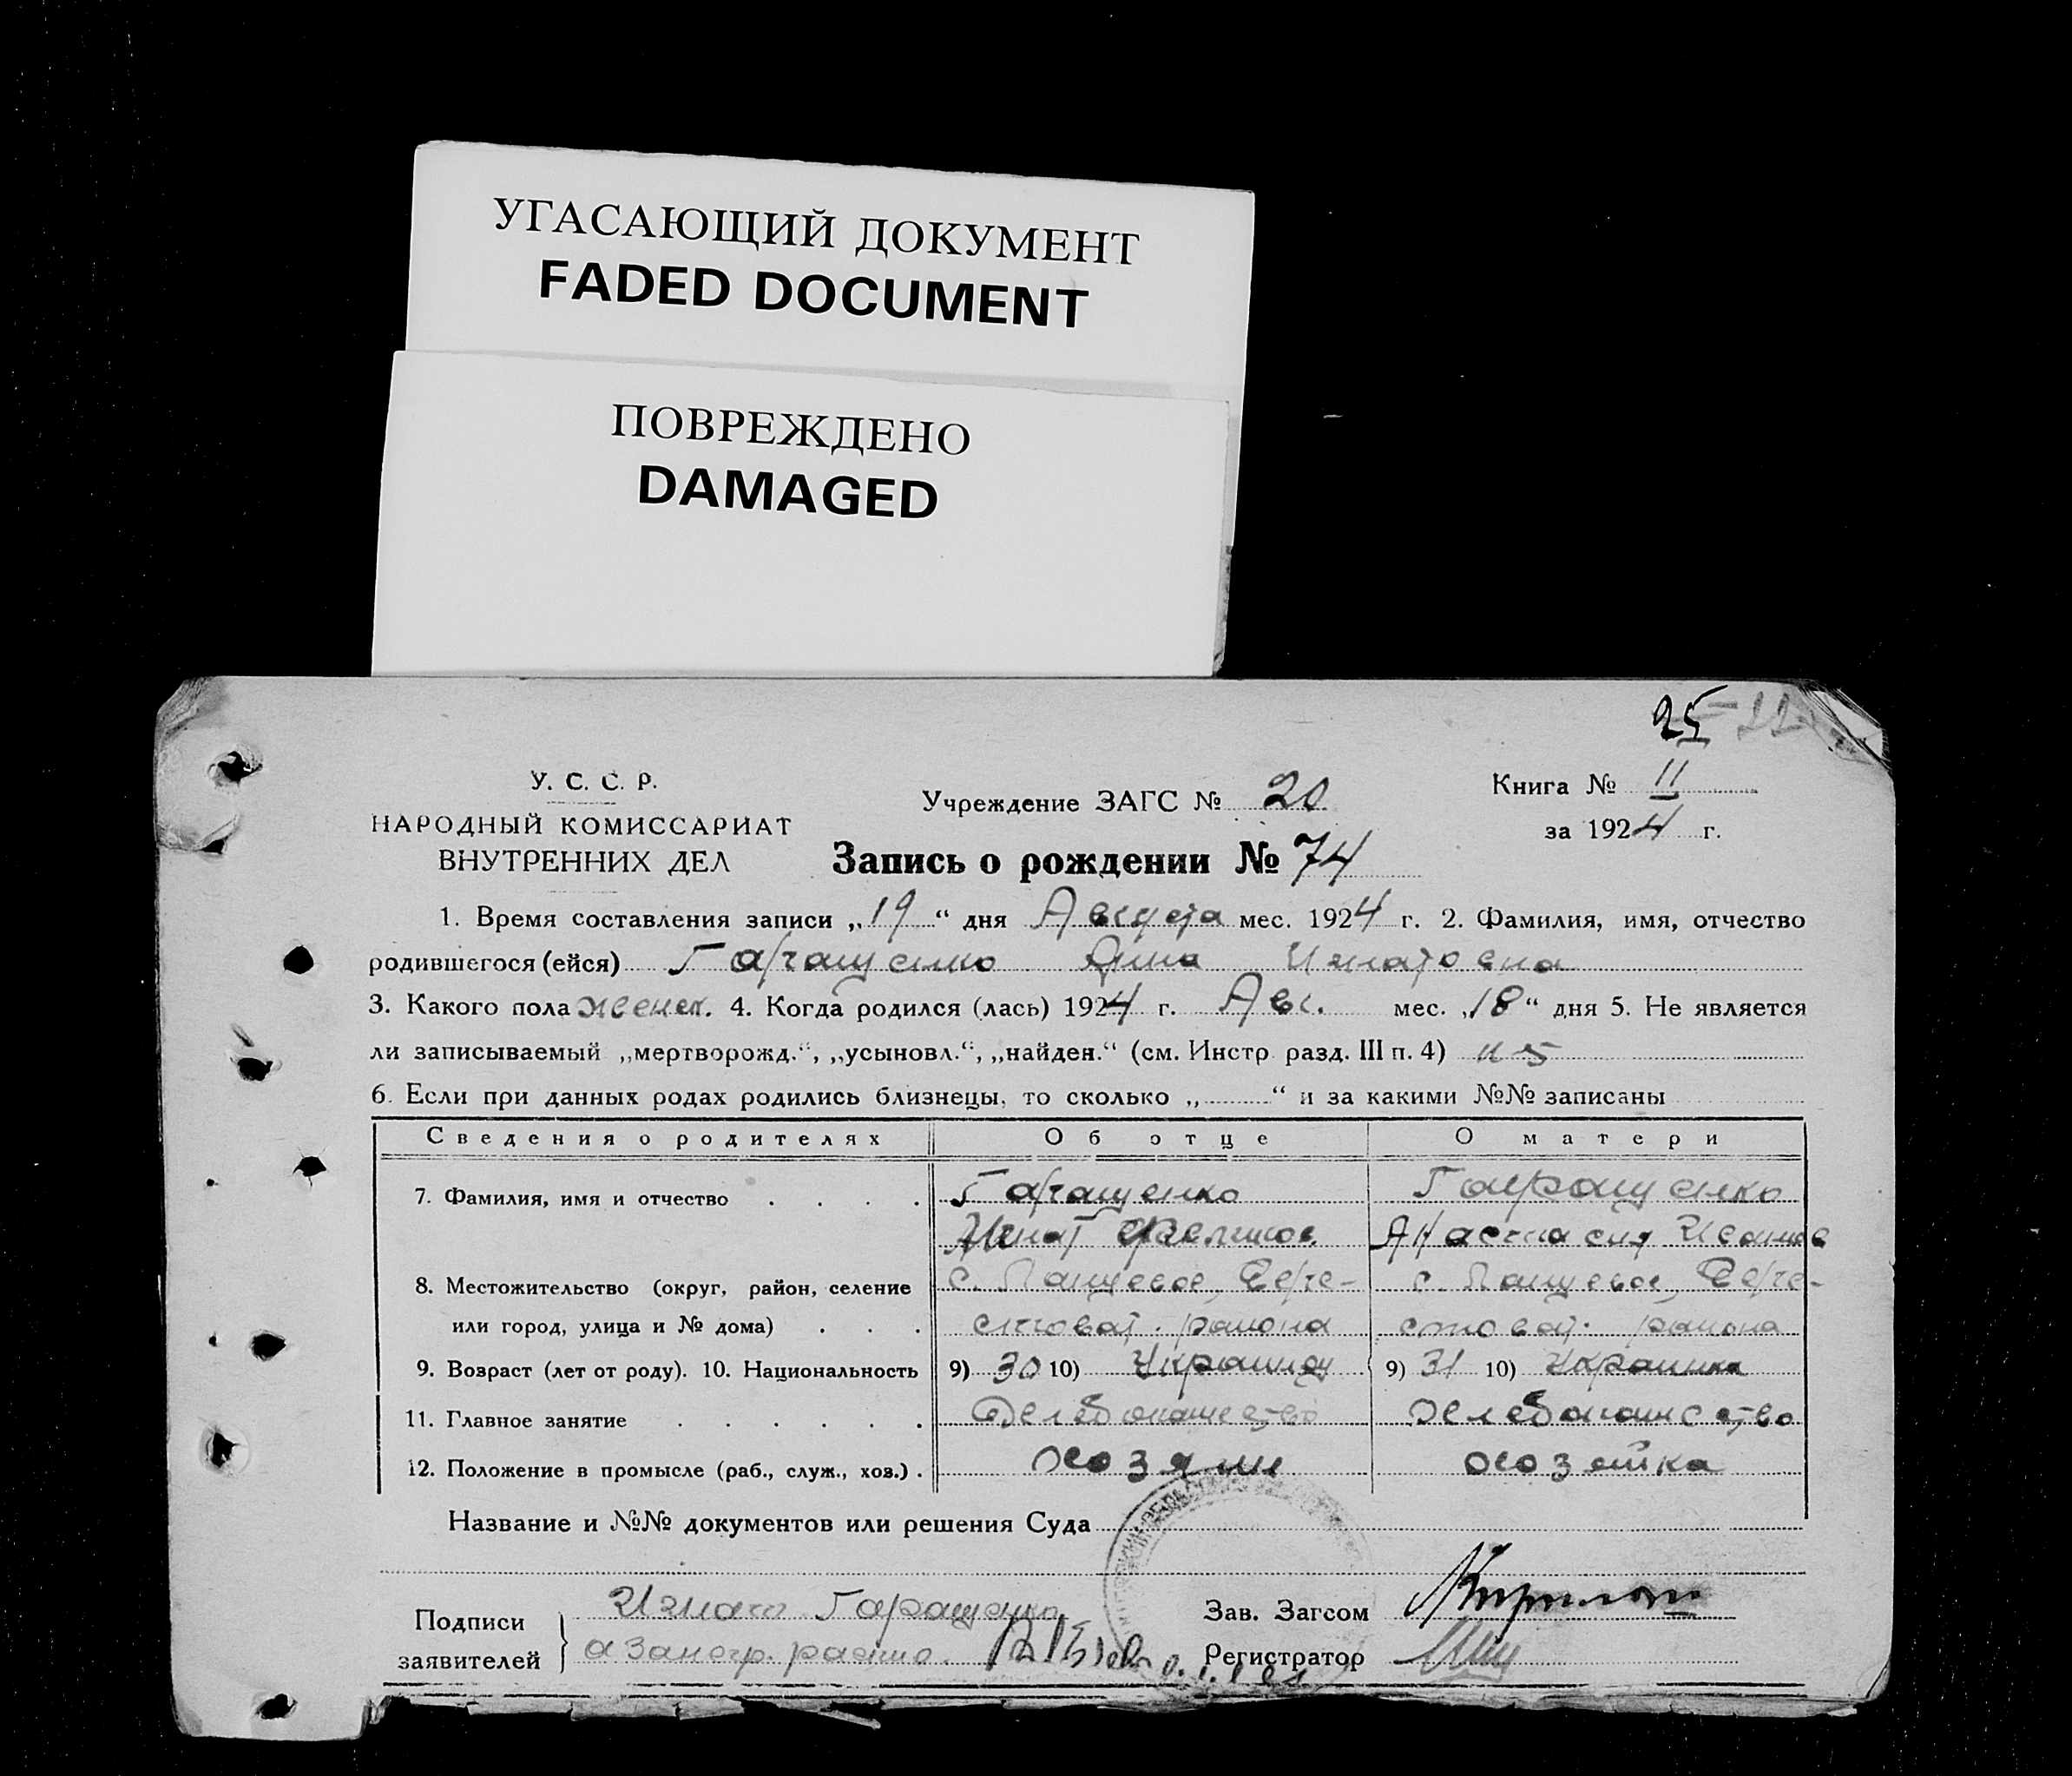 УГАСАЮЩИЙ ДОКУМЕНТ
FADED DOCUMENT
ПОВРЕЖДЕНО
DAMAGED
25
У. С. С. Р.
НАРОДНЫЙ КОМИССАРИАТ
ВНУТРЕННИХ ДЕЛ
Учреждение ЗАГС № 20
Книга № II
за 1924 г.
Запись о рождении № 74
1. Время составления записи „19“ дня Августа мес. 1924 г. 2. Фамилия, имя, отчество
родившегося (ейся) Гаращенко Анна Игнатовна
3. Какого пола женск. 4. Когда родился (лась) 1924 г. Авг. мес. „18“ дня 5. Не является
ли записываемый „мертворожд.“, „усыновл.“, „найден.“ (см. Инстр разд. III п. 4)
6. Если при данных родах родились близнецы, то сколько „ “ и за какими №№ записаны
Сведения о родителях Об отце О матери
7. Фамилия, имя и отчество Гаращенко Гаращенко
Игнат Анастасия Иванов
8. Местожительство (округ, район, селение с. Берес- с. Берес-
или город, улица и № дома) товат. района товат. района
9. Возраст (лет от роду). 10. Национальность 9) 30 10) Украинец 9) 31 10) Украинка
11. Главное занятие Хлебопашество Хлебопашество
12. Положение в промысле (раб., служ., хоз.) хозяин хозяйка
Название и №№ документов или решения Суда
Подписи заявителей Игнат Гаращенко
Зав. Загсом
Регистратор